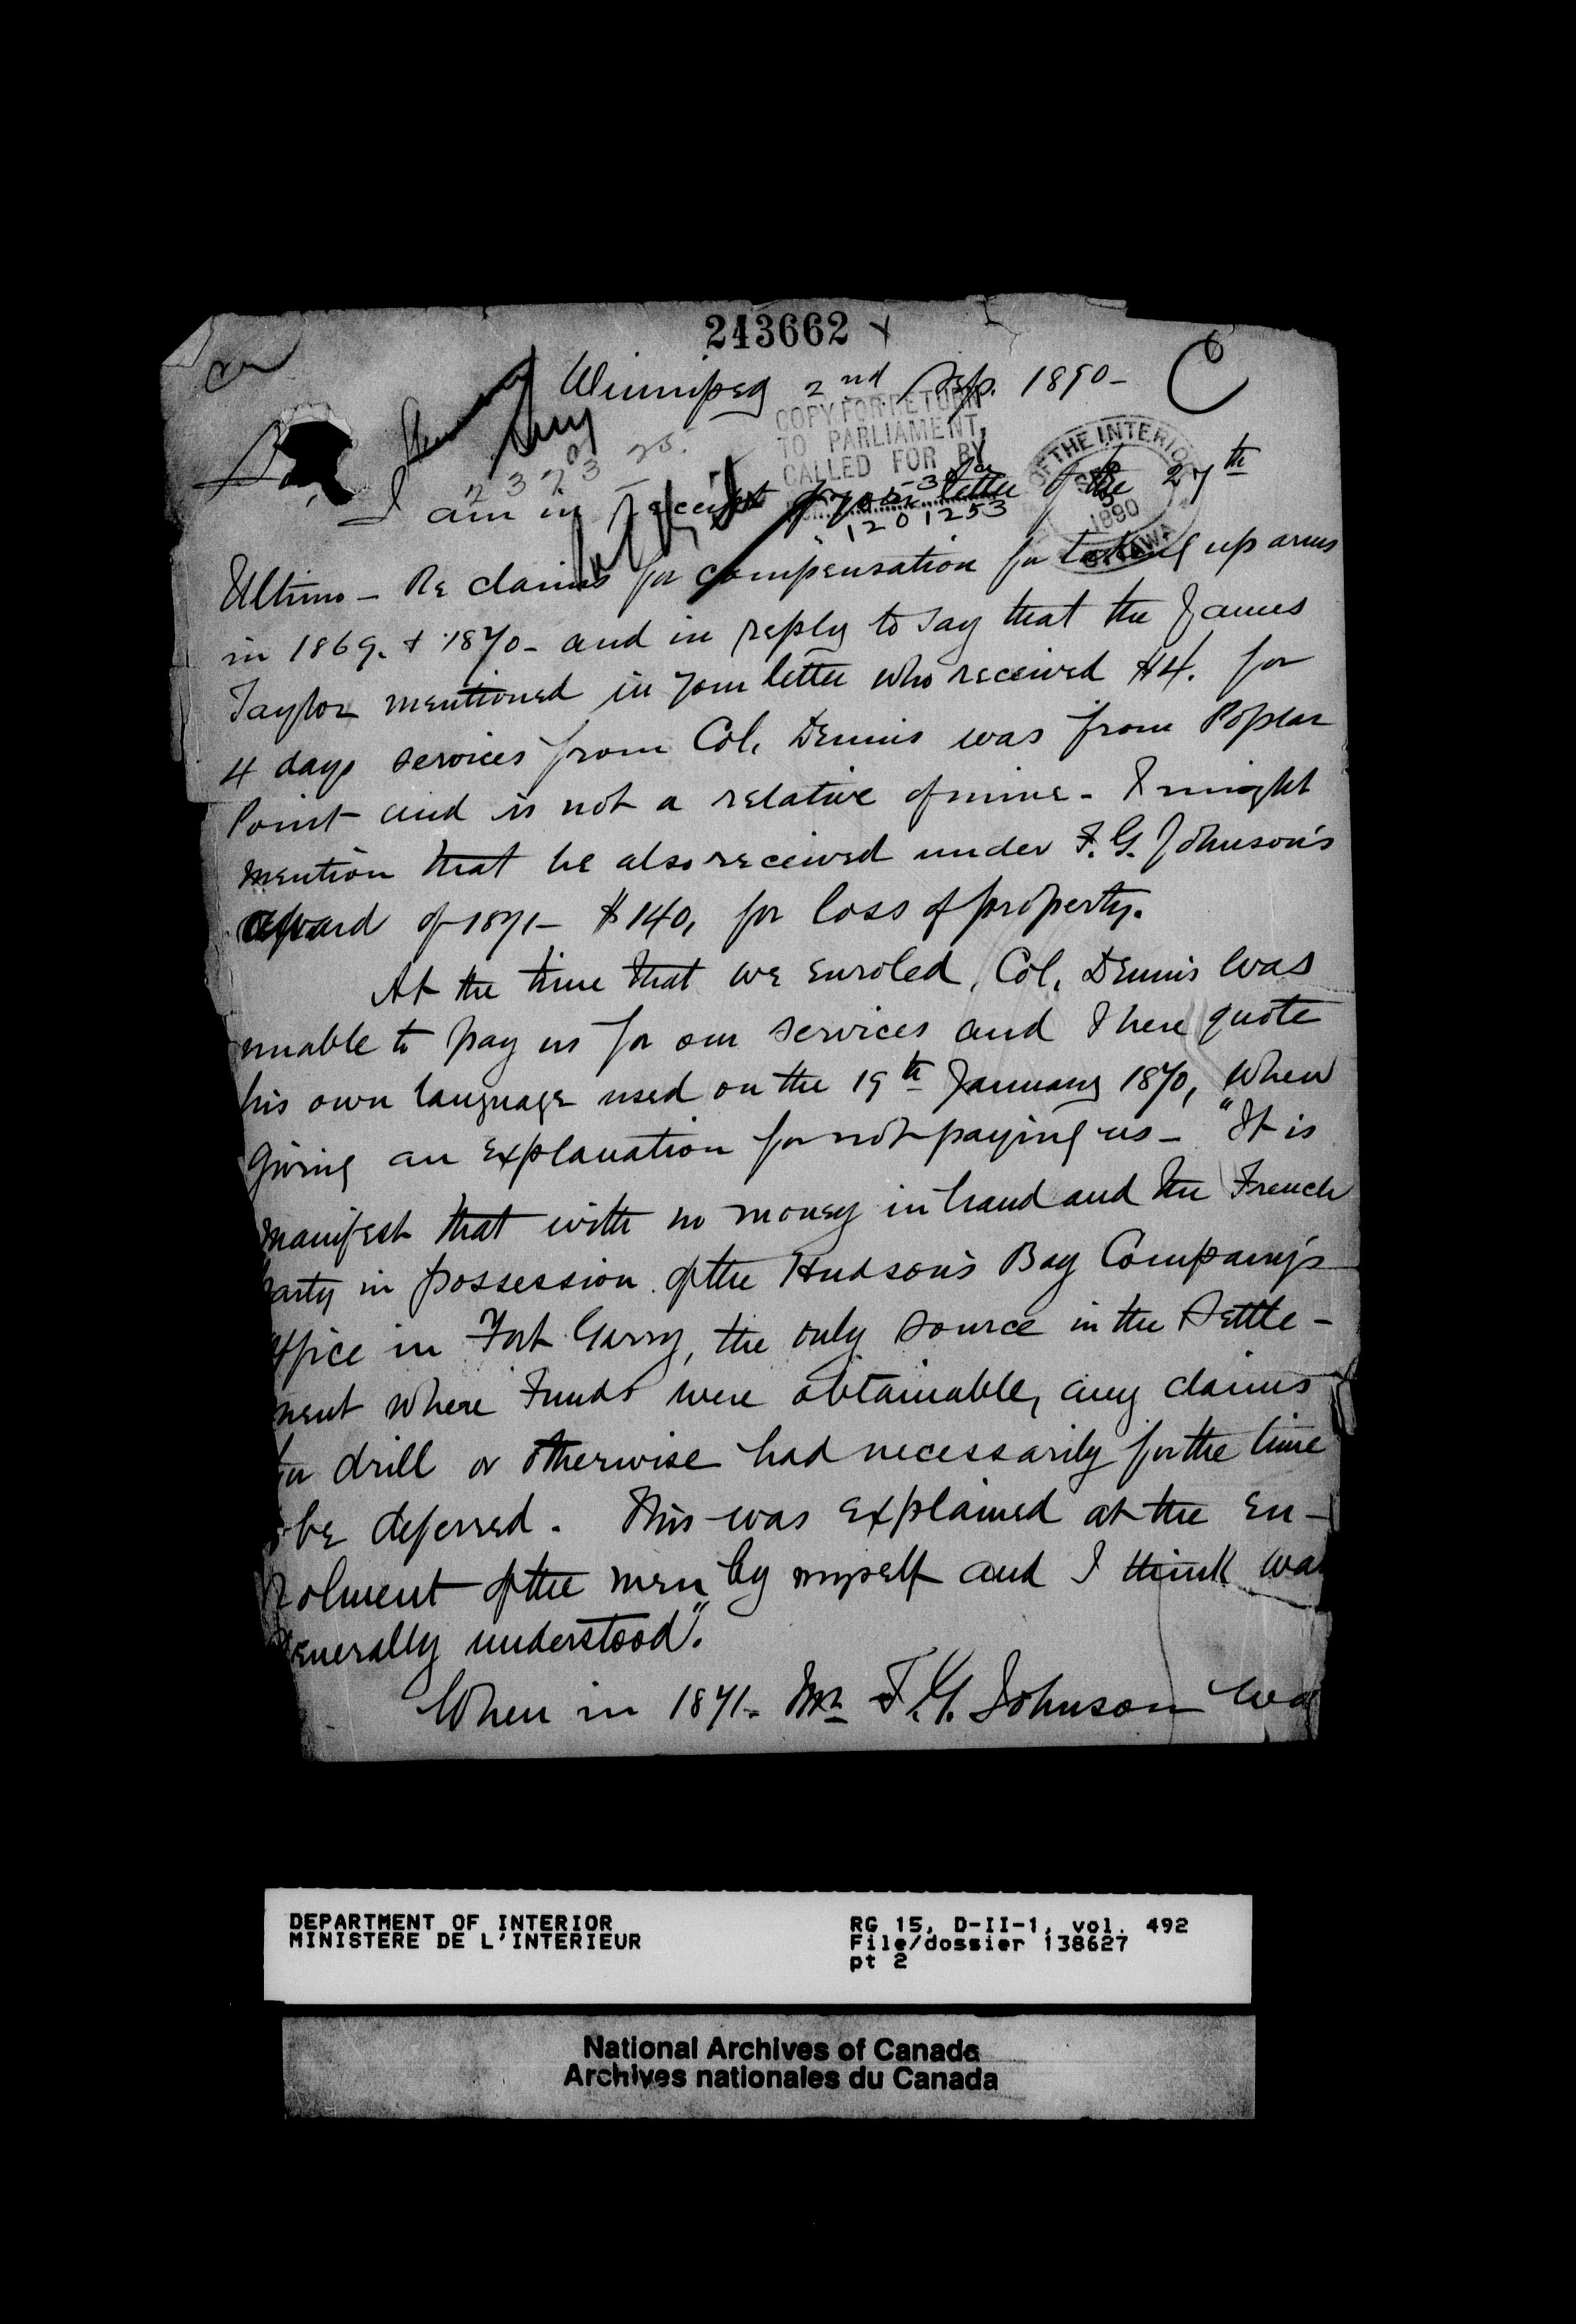 243662
Winnipeg 2nd Sep. 1890-
C
COPY FOR RETURN
TO PARLIAMENT,
CALLED FOR BY
1201253
OF THE INTERIO
1890
2323
25.
I am in receipt of your letter of the 27th
Ultimo - Re claims for compensation for taking up arms
in 1869. & 1870 - and in reply to say that the James
Taylor mentioned in your letter who received $4. for
4 days services from Col. Dennis was from Poplar
Point and is not a relative of mine - I might
mention that he also received under F. G. Johnson's
award of 1871 - $140, for loss of property.
At the time that we enroled, Col. Dennis was
unable to pay us for our services and I here quote
his own language used on the 19th January 1870, when
giving an explanation for not paying us - "It is
manifest that with no money in hand and the French
party in possession of the Hudson's Bay Company's
office in Fort Garry, the only source in the Settle-
ment where Funds were obtainable, any claims
for drill or otherwise had necessarily for the time
to be deferred. This was explained at the en-
rolment of the men by myself and I think was
generally understood".
When in 1871 - Mr F. G. Johnson wa
DEPARTMENT OF INTERIOR
MINISTERE DE L'INTERIEUR
RG 15, D-II-1, vol. 492
File/dossier 138627
pt 2
National Archives of Canada
Archives nationales du Canada